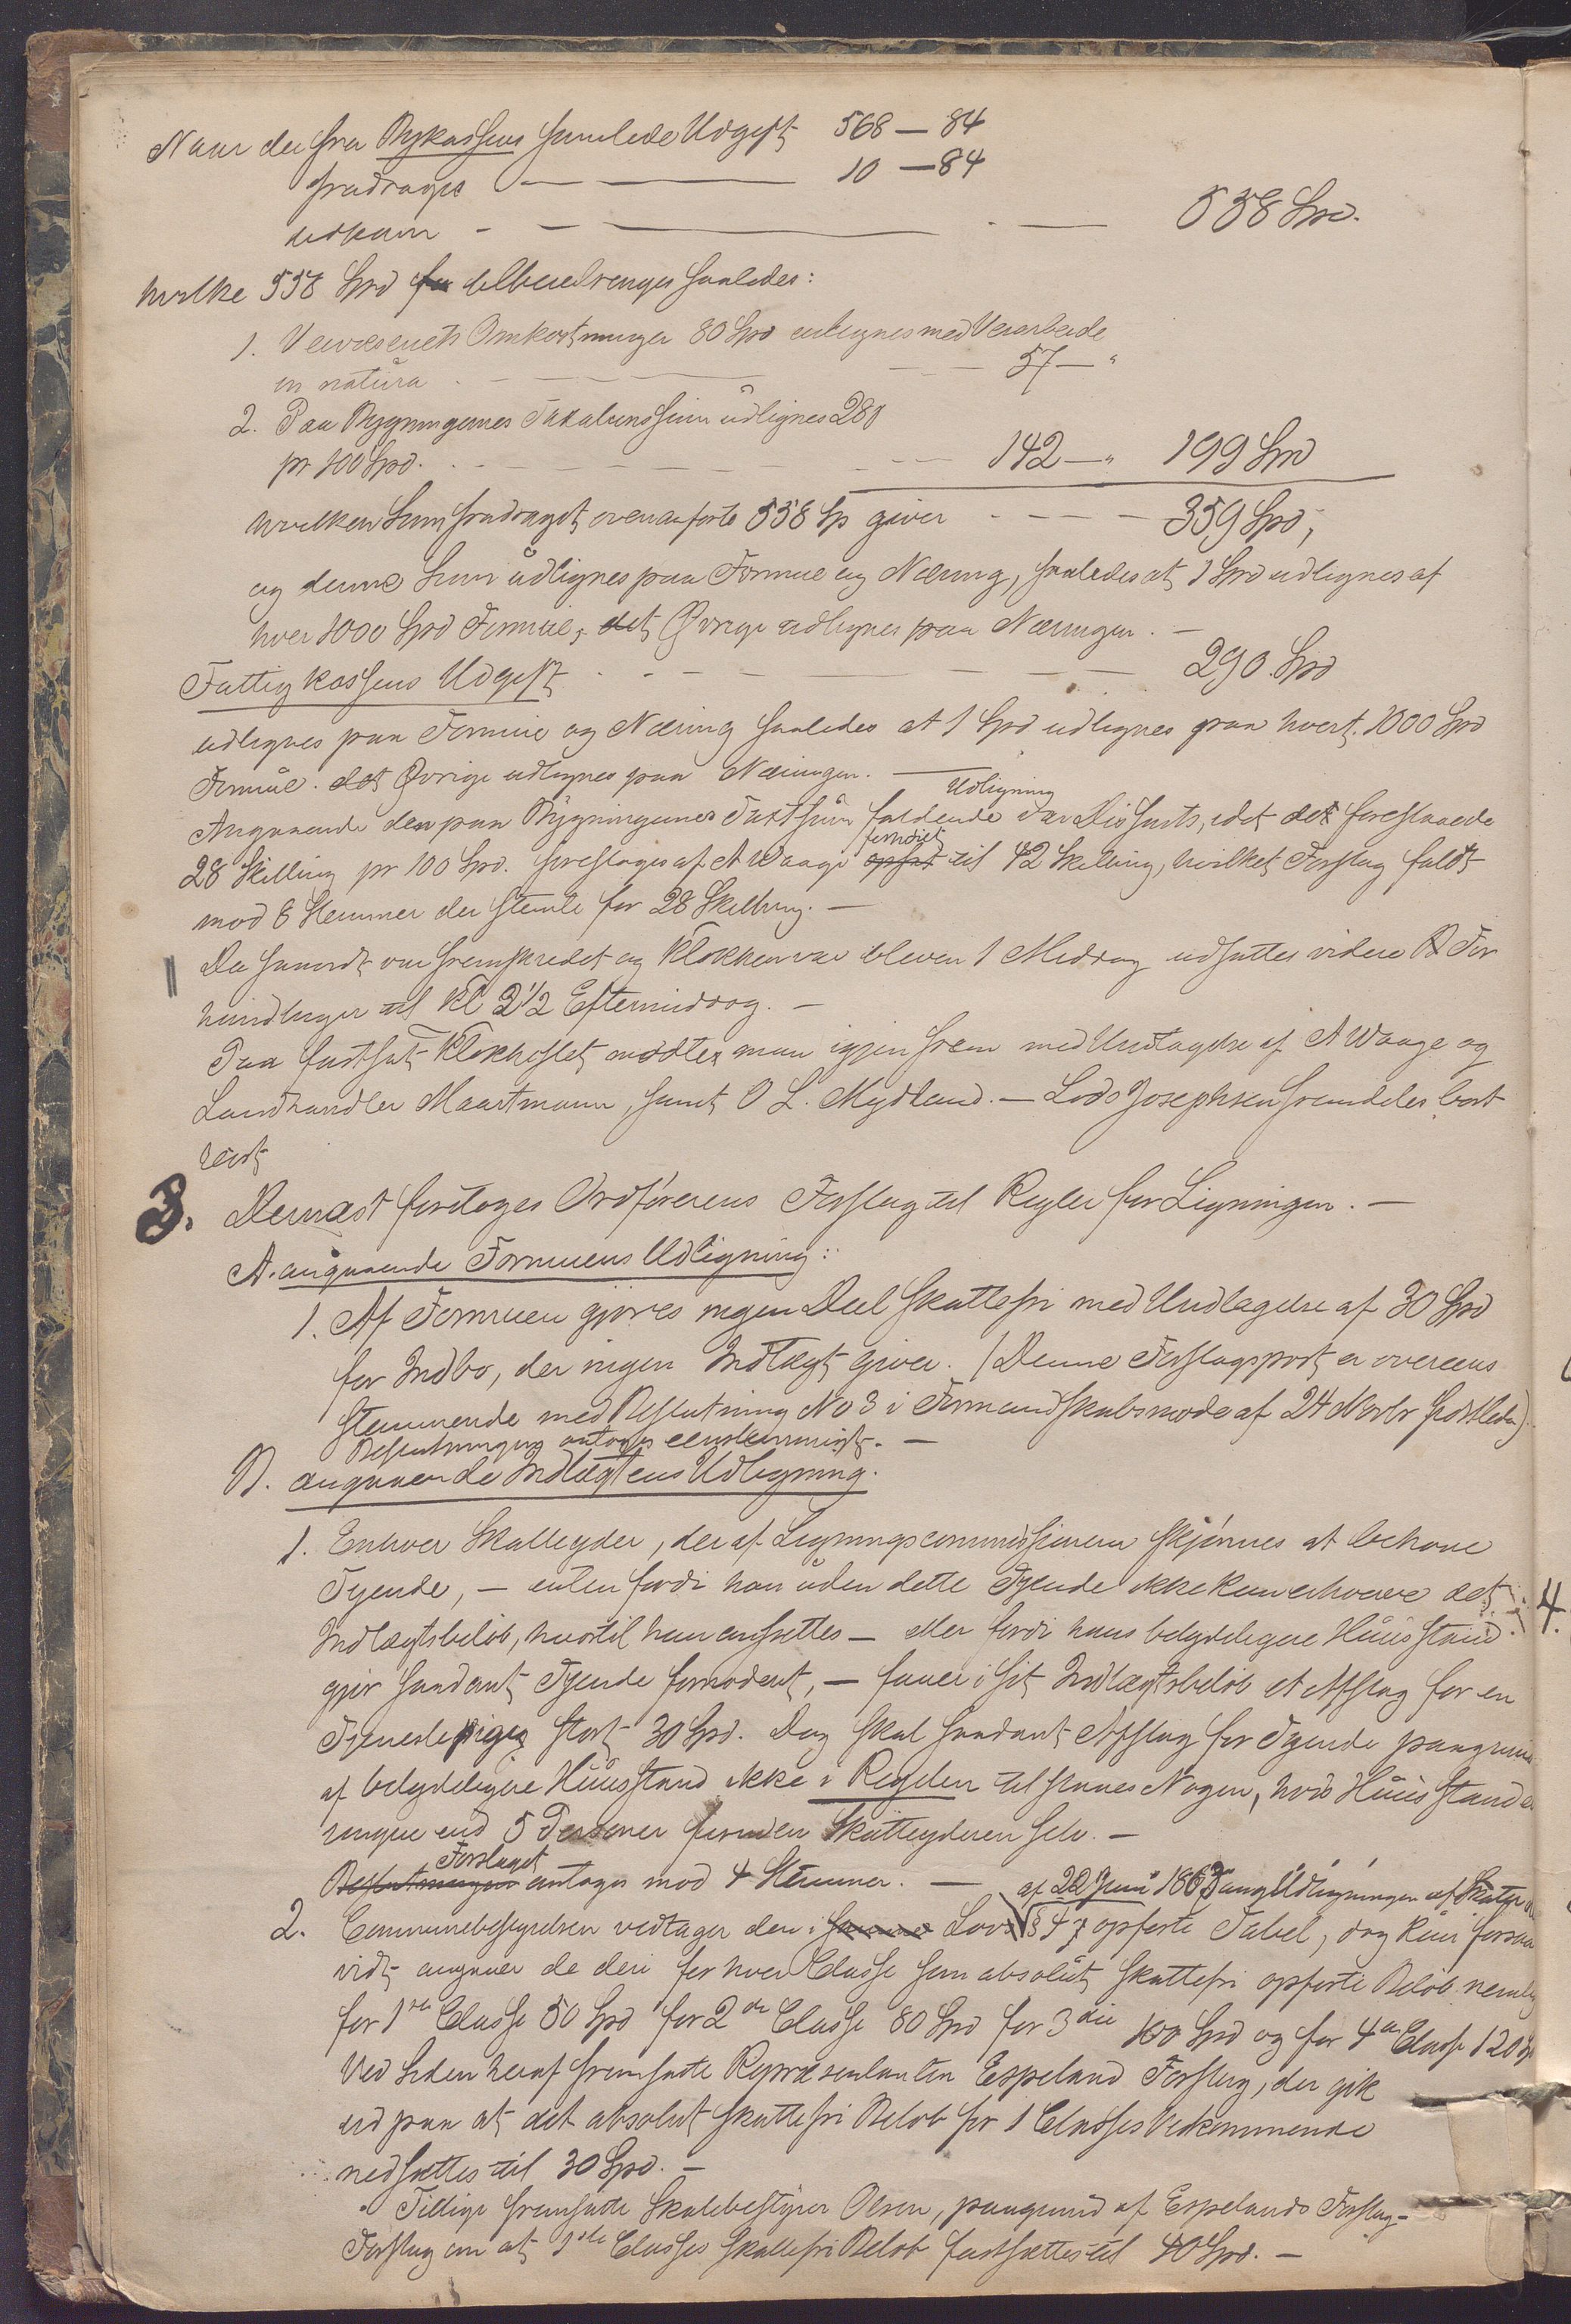 Naar der fra Bykassens samlede Udgift 568 — 84
fradrages — — 10 — 84
udkom - — — — 558 Spd.
hvilke 558 Spd tilbeiebringes saaledes:
1. Veivæsenets Omkostninger 80 Spd udlignes med Veiarbeide
in natura . — — — 57 — "
2. Paa Bygningernes Taxationssum udlignes 28 s
pr 100 Spd. . - — — 142 — " 199 Spd
hvilken Sum fradraget ovenanførte 558 Sp giver - - - - 359 Spd,
og denne Sum udlignes paa Formue og Næring, saaledes at 1 Spd udlignes af
hver 1000 Spd Formue, det Øvrige udlignes paa Næringen. —
Fattigkassens Udgift . - - — — — 290 Spd
udlignes paa Formue og Næring saaledes at 1 Spd udlignes paa hvert 1000 Spd
Formue. det Øvrige udlignes paa Næringen. —
Udligning
Angaaende den paa Bygningernes Taxtsum faldende var Dissents, idet det foreslaaede
forhøiet
28 Skilling pr 100 Spd. foresloges af A Waage til 42 Skilling, hvilket Forslag faldt
mod 8 Stemmer der stemte for 28 Skilling. —
Da saavidt var fremskredet og Klokken var bleven 1 Middag udsattes videre For
handlinger til Kl 2 1/2 Eftermiddag. —
Paa fastsat Klokkeslet mødte man igjen frem med Undtagelse af A Waage og
Landhandler Maartmann, samt O L. Mydland. — Lods Josephsen fremdeles bort
reist
3. Dernæst foretoges Ordførerens Forslag til Regler for Ligningen. —
A. angaaende Formuens Udligning:
1. Af Formuen gjøres ingen Deel skattefri med Undtagelse af 30 Spd
for Indbo, der ingen Indtægt giver. (Denne Forslagspost er overeens
stemmende med Beslutning No 3 i Formandskabsmøde af 24 Novbr sidstleden).
Beslutningen antoges eenstemmigt. —
B. angaaende Indtægtens Udligning.
1. Enhver Skatteyder, der af Ligningscommissionen skjønnes at behøve
Tyende, — enten fordi han uden dette Tyende ikke kan erhverve det
Indtægtsbeløb, hvortil han ansættes — eller fordi hans betydeligere Huusstand
gjør saadant Tyende fornødent, — faaer i sit Indtægtsbeløb et Afslag for en
Tjenestepige stort 30 Spd. Dog skal saadant Afslag for Tyende paagrund
af betydeligere Huusstand ikke i Regelen tilstaaes Nogen, hvis Huusstand er
ringere end 5 Personer foruden Skatteyderen selv. —
Forslaget
Beslutningen antoges mod 4 Stemmer. —
af 22 Juni 1863 ang Udligningen af Skatter
2. Communebestyrelsen vedtager den i Lov § 47 opførte Tabel, dog kun forsaa
vidt angaaer de deri for hver Classe som absolut skattefri opførte Beløb nemlig
for 1ste Classe 50 Spd for 2den Classe 80 Spd for 3die 100 Spd og for 4de Classe 120 Sp
Ved Siden heraf fremsatte Repræsentanten Espeland Forslag, der gik
ud paa at det absolut skattefri Beløb for 1 Classes Vedkommende
nedsættes til 30 Spd. —
Tillige fremsatte Skolebestyrer Olsen, paagrund af Espelands Forslag-
Forslag om at 1ste Classes skattefri Beløb fastsættes til 40 Spd. —
4.